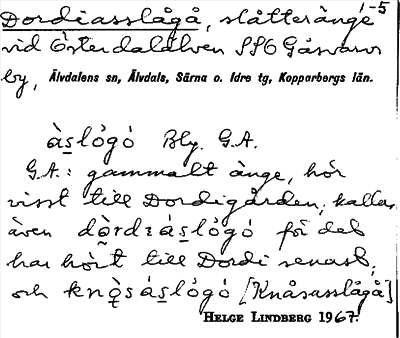 1-5
Dordiasslågå, slåtteränge
vid Österdalälven SSO Åsvarvs
by, Älvdalens sn, Älvdals, Särna o. Idre tg, Kopparbergs län.
às̱lǫ̀gǫ́ Bly. G.A.
G.A.: gammalt änge, hör
visst till Dordigården; kallas
även dò̱rdɪás̱lǫ̀gǫ́ för det
har hört till Dordi senast;
och knǫ̱̀sás̱lǫ̀gǫ́ [Knåsasslågå]
HELGE LINDBERG 1967.